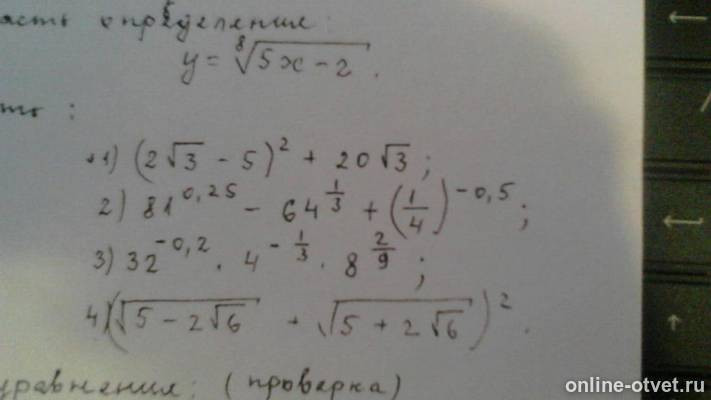 асть определения:
y = ⁸√(5x - 2).
ть :
1) (2√3 - 5)² + 20√3 ;
2) 81^0,25 - 64^(1/3) + (1/4)^-0,5 ;
3) 32^-0,2 · 4^(-1/3) · 8^(2/9) ;
4) (√(5 - 2√6) + √(5 + 2√6))².
уравнения: (проверка)
online-otvet.ru